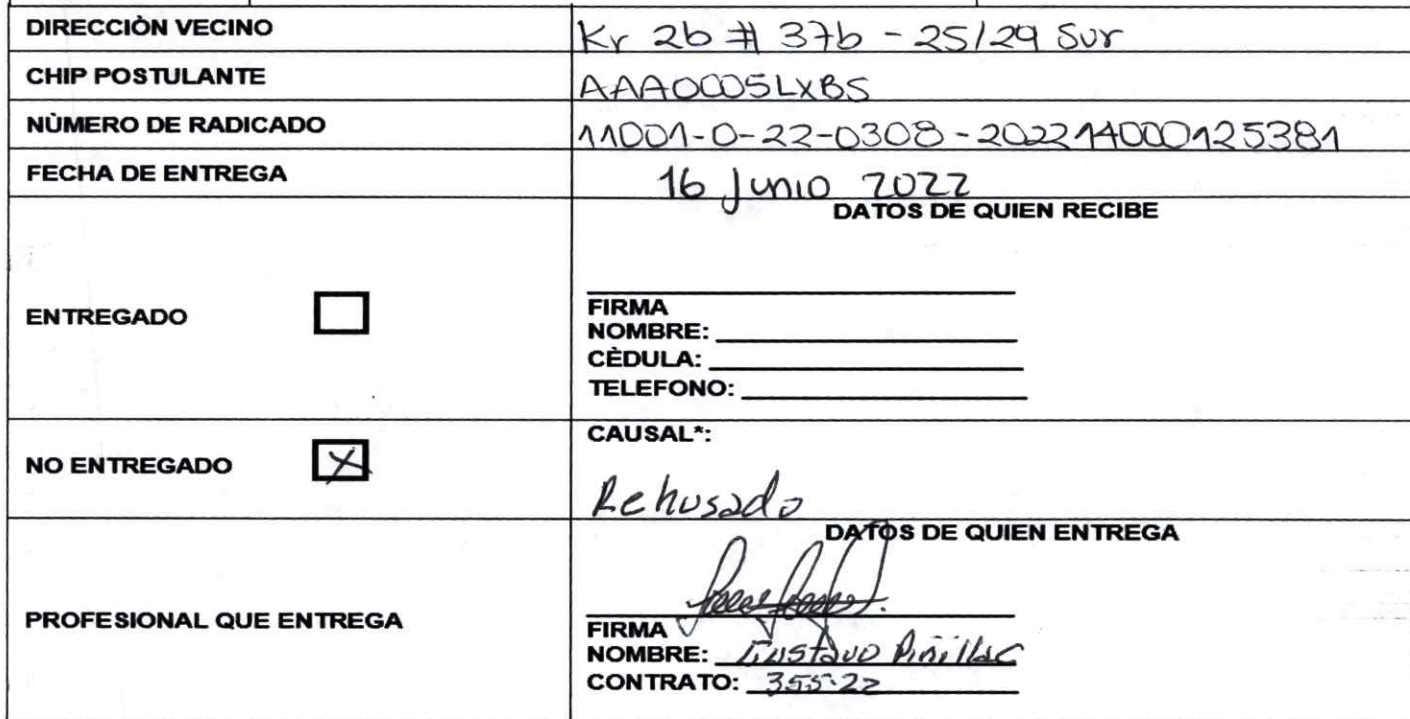 DIRECCIÒN VECINO Kr 2b # 37b - 25/29 Sur
CHIP POSTULANTE AAA0005LXBS
NÙMERO DE RADICADO 11001-0-22-0308-202214000125381
FECHA DE ENTREGA 16 Junio 2022
DATOS DE QUIEN RECIBE
ENTREGADO
FIRMA
NOMBRE:
CÈDULA:
TELEFONO:
NO ENTREGADO X
CAUSAL*:
Rehusado
DATOS DE QUIEN ENTREGA
PROFESIONAL QUE ENTREGA
FIRMA
NOMBRE: Gustavo Pinilla C
CONTRATO: 355-22